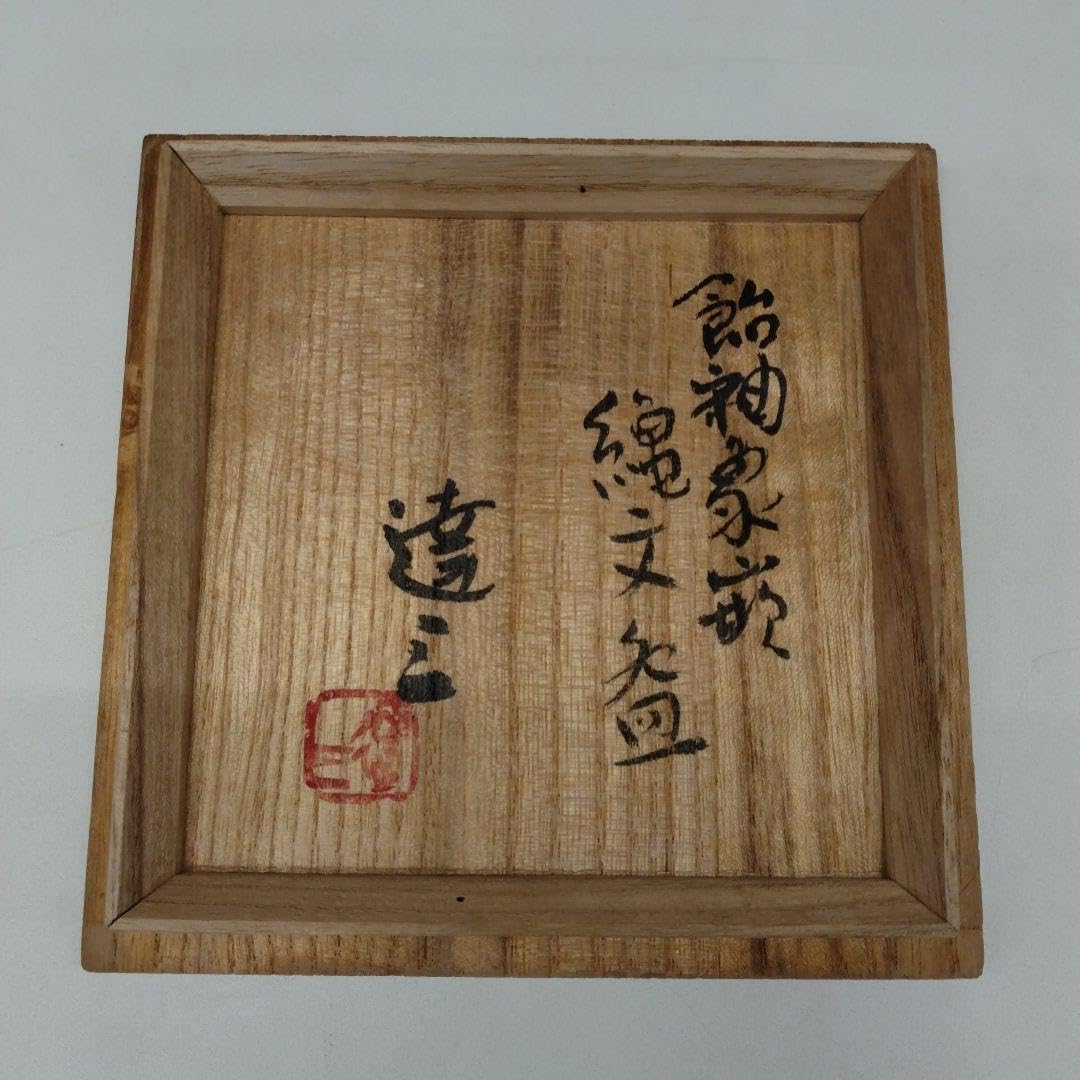 飴釉象嵌
縄文盌
達三